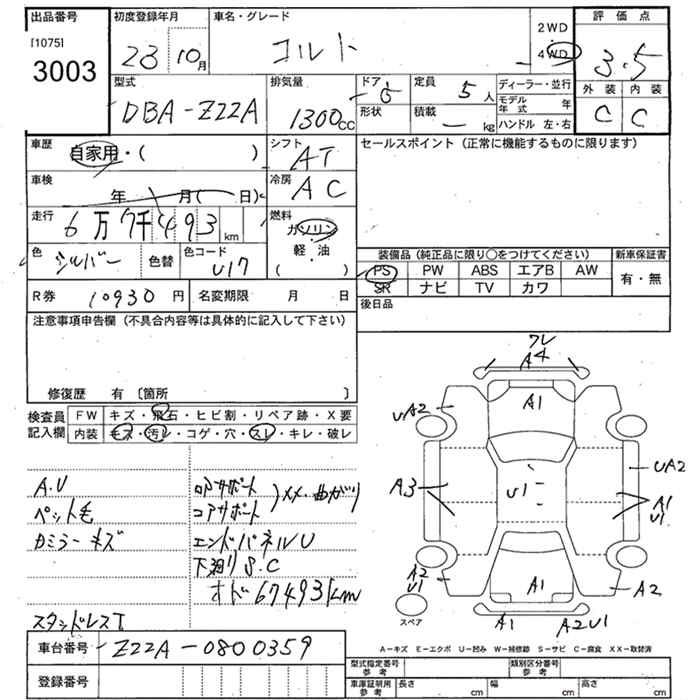 出品番号 初度登録年月 車名・グレード 評価点
[1075] 3003
23 10月 コルト 2WD 4WD 3.5
外装 内装
C C
型式 排気量 ドア 定員 ディーラー・並行
DBA-Z22A 1300cc 5 5人 モデル年式 年
形状 積載 kg ハンドル 左・右
車歴 シフト セールスポイント(正常に機能するものに限ります)
自家用・( ) AT
車検 冷房
年 月( 日) AC
走行 燃料
6万7千493km ガソリン
色 色替 色コード 軽・油
シルバー U17 ( )
装備品(純正品に限り○をつけてください) 新車保証書
PS PW ABS エアB AW 有・無
SR ナビ TV カワ
R券 10930円 名変期限 月 日 後日品
注意事項申告欄(不具合内容等は具体的に記入して下さい)
修復歴 有〔箇所 〕
検査員記入欄
FW キズ・飛石・ヒビ割・リペア跡・X要
内装 キズ・汚レ・コゲ・穴・スレ・キレ・破レ
A.U
ペット毛 コアサポート
カミラーキズ エンドパネルU
下廻りS.C
オド67493km
スタッドレスT
フレ
A4
A1
UA2
A3
U1
UA2
A1
U1
A2
U1
A1
A2
A1
A2U1
スペア
A-キズ E-エクボ U-凹み W-補修跡 S-サビ C-腐食 XX-取替済
車台番号 Z22A-0800359
登録番号
型式指定番号 参考 類別区分番号 参考
車庫証明用 参考 長さ cm 幅 cm 高さ cm